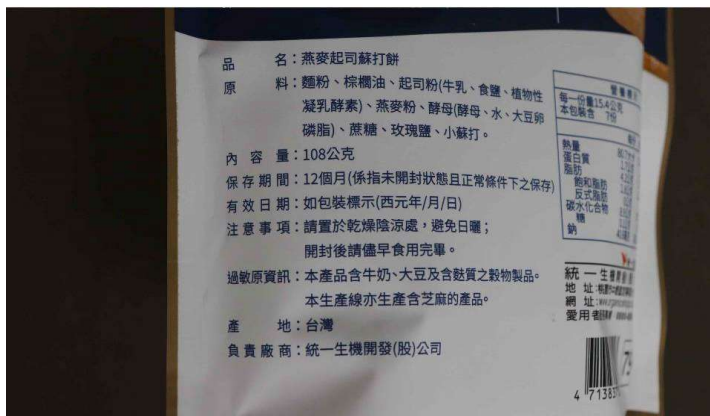 品名：燕麥起司蘇打餅
原料：麵粉、棕櫚油、起司粉(牛乳、食鹽、植物性
凝乳酵素)、燕麥粉、酵母(酵母、水、大豆卵
磷脂)、蔗糖、玫瑰鹽、小蘇打。
內容量：108公克
保存期間：12個月(係指未開封狀態且正常條件下之保存)
有效日期：如包裝標示(西元年/月/日)
注意事項：請置於乾燥陰涼處，避免日曬；
開封後請儘早食用完畢。
過敏原資訊：本產品含牛奶、大豆及含麩質之穀物製品。
本生產線亦生產含芝麻的產品。
產地：台灣
負責廠商：統一生機開發(股)公司
營養標
每一份量15.4公克
本包裝含 7份
熱量
蛋白質
脂肪
飽和脂肪
反式脂肪
碳水化合物
糖
鈉
統一生機
地址：
網址：
愛用者
4 71383